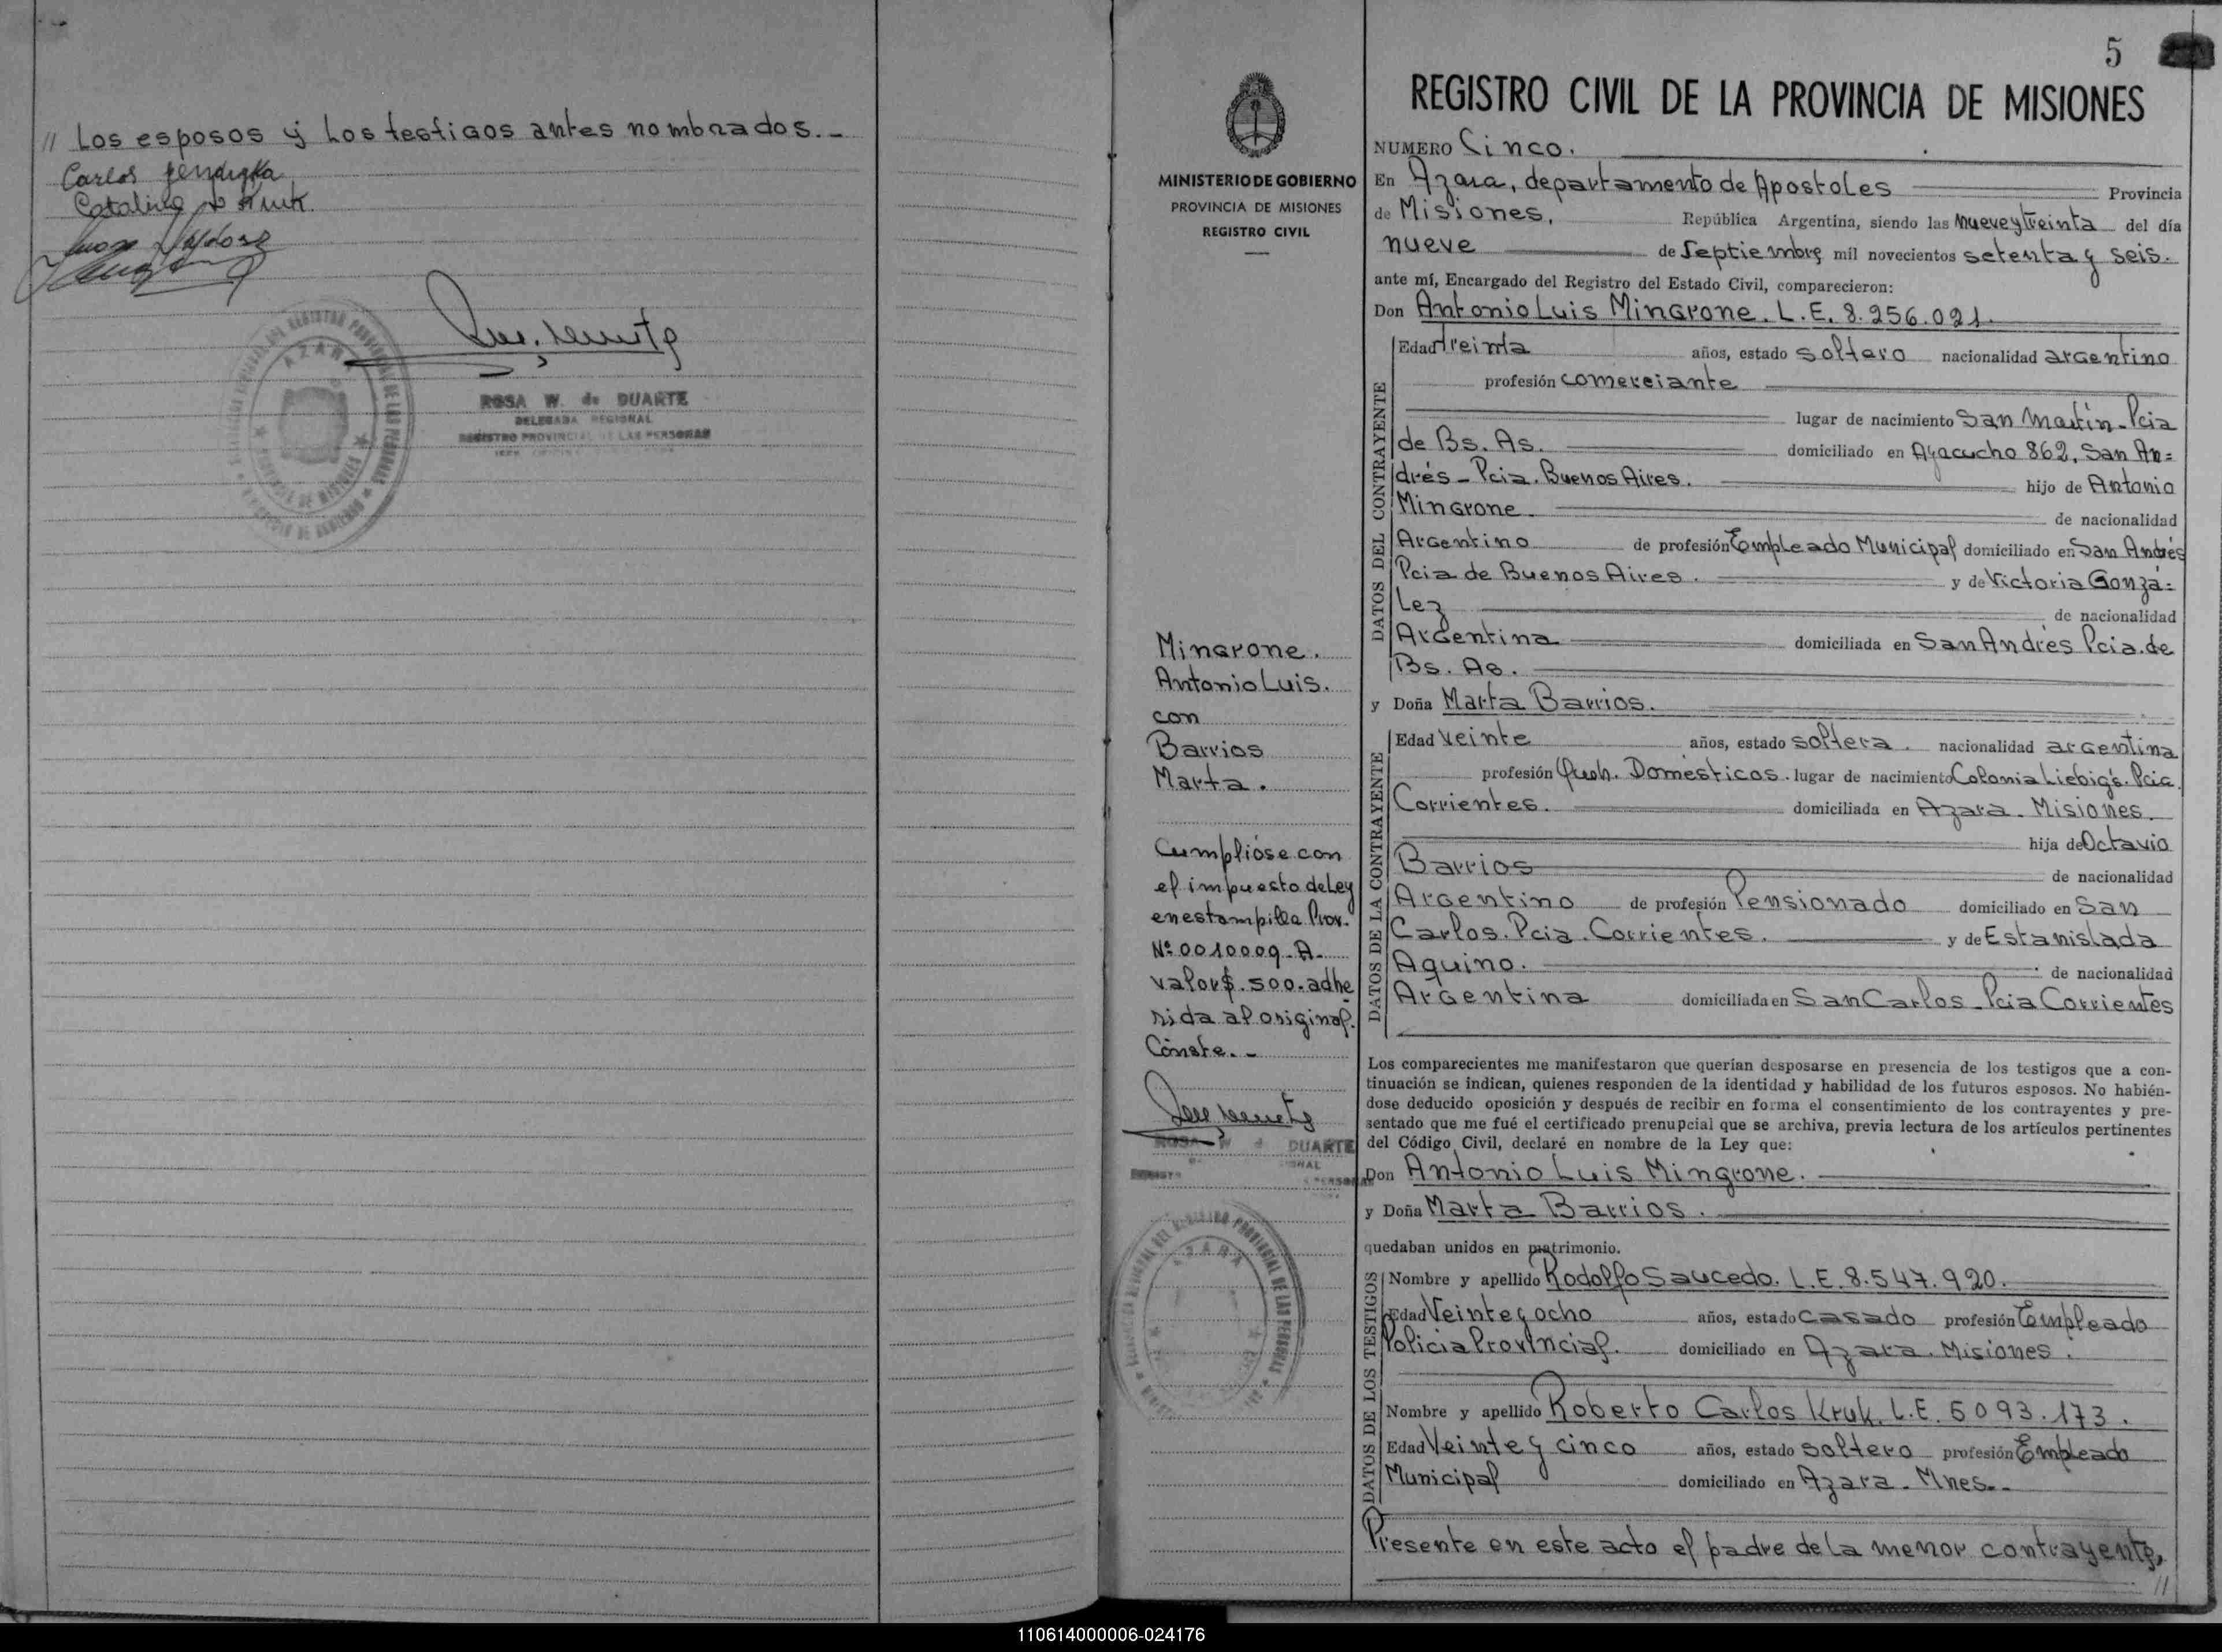 // Los esposos y Los testigos antes nombrados.-
Carlos
Catalina
ROSA W. de DUARTE
DELEGADA REGIONAL
REGISTRO PROVINCIAL DE LAS PERSONAS
AZARA
5
REGISTRO CIVIL DE LA PROVINCIA DE MISIONES
MINISTERIO DE GOBIERNO
PROVINCIA DE MISIONES
REGISTRO CIVIL
Mingrone.
Antonio Luis.
con
Barrios
Marta.
Cumplióse con
el impuesto de Ley
en estampilla Prov.
Nº 0010009-A-
valor $.500.- adhe
rida al original.
Conste.-
ROSA W d DUARTE
AZARA
NUMERO Cinco.
En Azara, departamento de Apostoles Provincia
de Misiones, República Argentina, siendo las nueve y treinta del día
nueve de Septiembre mil novecientos setenta y seis.
ante mí, Encargado del Registro del Estado Civil, comparecieron:
Don Antonio Luis Mingrone. L.E. 8.256.021.
DATOS DEL CONTRAYENTE
Edad treinta años, estado soltero nacionalidad argentino
profesión comerciante
lugar de nacimiento San Martín-Pcia
de Bs. As. domiciliado en Ayacucho 862, San An=
drés - Pcia. Buenos Aires. hijo de Antonio
Mingrone de nacionalidad
Argentino de profesión Empleado Municipal domiciliado en San Andrés
Pcia de Buenos Aires. y de Victoria Gonzá=
Lez de nacionalidad
Argentina domiciliada en San Andrés Pcia. de
Bs. As.
y Doña Marta Barrios.
DATOS DE LA CONTRAYENTE
Edad veinte años, estado soltera. nacionalidad argentina
profesión Queh. Domésticos. lugar de nacimiento Colonia Liebig's. Pcia.
Corrientes. domiciliada en Azara. Misiones.
hija de Octavio
Barrios de nacionalidad
Argentino de profesión Pensionado domiciliado en San
Carlos. Pcia. Corrientes. y de Estanislada
Aquino. de nacionalidad
Argentina domiciliada en San Carlos - Pcia Corrientes
Los comparecientes me manifestaron que querían desposarse en presencia de los testigos que a con-
tinuación se indican, quienes responden de la identidad y habilidad de los futuros esposos. No habién-
dose deducido oposición y después de recibir en forma el consentimiento de los contrayentes y pre-
sentado que me fué el certificado prenupcial que se archiva, previa lectura de los artículos pertinentes
del Código Civil, declaré en nombre de la Ley que:
Don Antonio Luis Mingrone.
y Doña Marta Barrios.
quedaban unidos en matrimonio.
DATOS DE LOS TESTIGOS
Nombre y apellido Rodolfo Saucedo. L.E. 8.547.920.
Edad Veinte y ocho años, estado casado profesión Empleado
Policia Provincial. domiciliado en Azara. Misiones.
Nombre y apellido Roberto Carlos Kruk. L.E. 5093.173.
Edad Veinte y cinco años, estado soltero profesión Empleado
Municipal domiciliado en Azara. Mnes.-
Presente en este acto el padre de La menor contrayente,
//
110614000006-024176